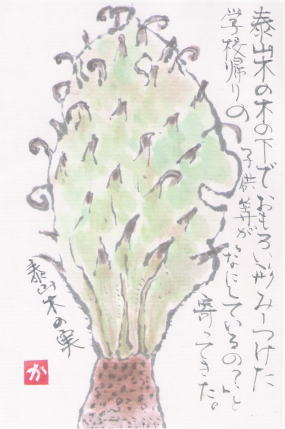 泰山木の木の下でおもろい形みーつけた
学校帰りの子供等が「なにしているの?」と
寄ってきた。
泰山木の実
か